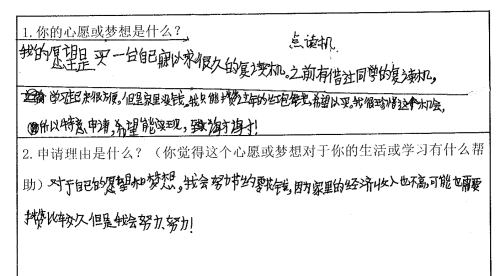 1.你的心愿或梦想是什么？
点读机
我的愿望是买一台自己梦以求很久的复读机。之前有借过同学的复读机，
学习起来很方便，但是家里没钱，我只能攒过年的红包钱，希望可以买。我很珍惜这个机会，
所以特意申请，希望能实现，
2.申请理由是什么？（你觉得这个心愿或梦想对于你的生活或学习有什么帮
助）对于自己的愿望和梦想，我会努力节约零花钱，因为家里的经济收入也不高，可能也需要
攒比较久，但是我会努力、努力！